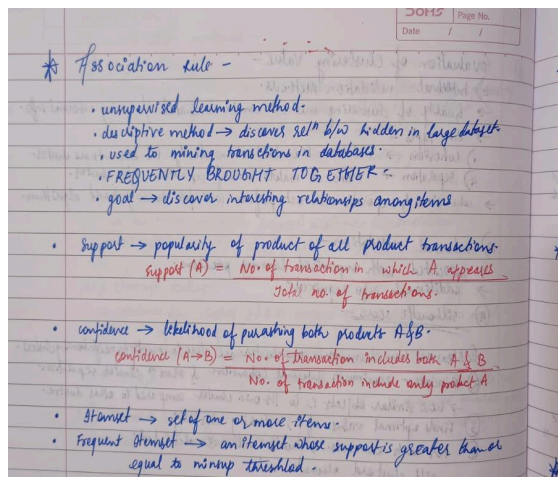 DOMS
Page No.
Date / /
* Association Rule -
• unsupervised learning method.
• descriptive method → discovers relⁿ b/w hidden in large dataset.
• used to mining transctions in databases.
• FREQUENTLY BROUGHT TOGETHER -
• goal → discover interesting relationsips among items
• Support → popularity of product of all product transactions.
Support (A) = No. of transaction in which A appears
Total no. of transactions.
• confidence → likelihood of purashing both products A & B.
confidence (A→B) = No. of transaction includes both A & B
No. of transaction include only product A
• Itemset → set of one or more items.
• Frequent Itemset → an itemset whose support is greater than or
equal to minsup threshlod.